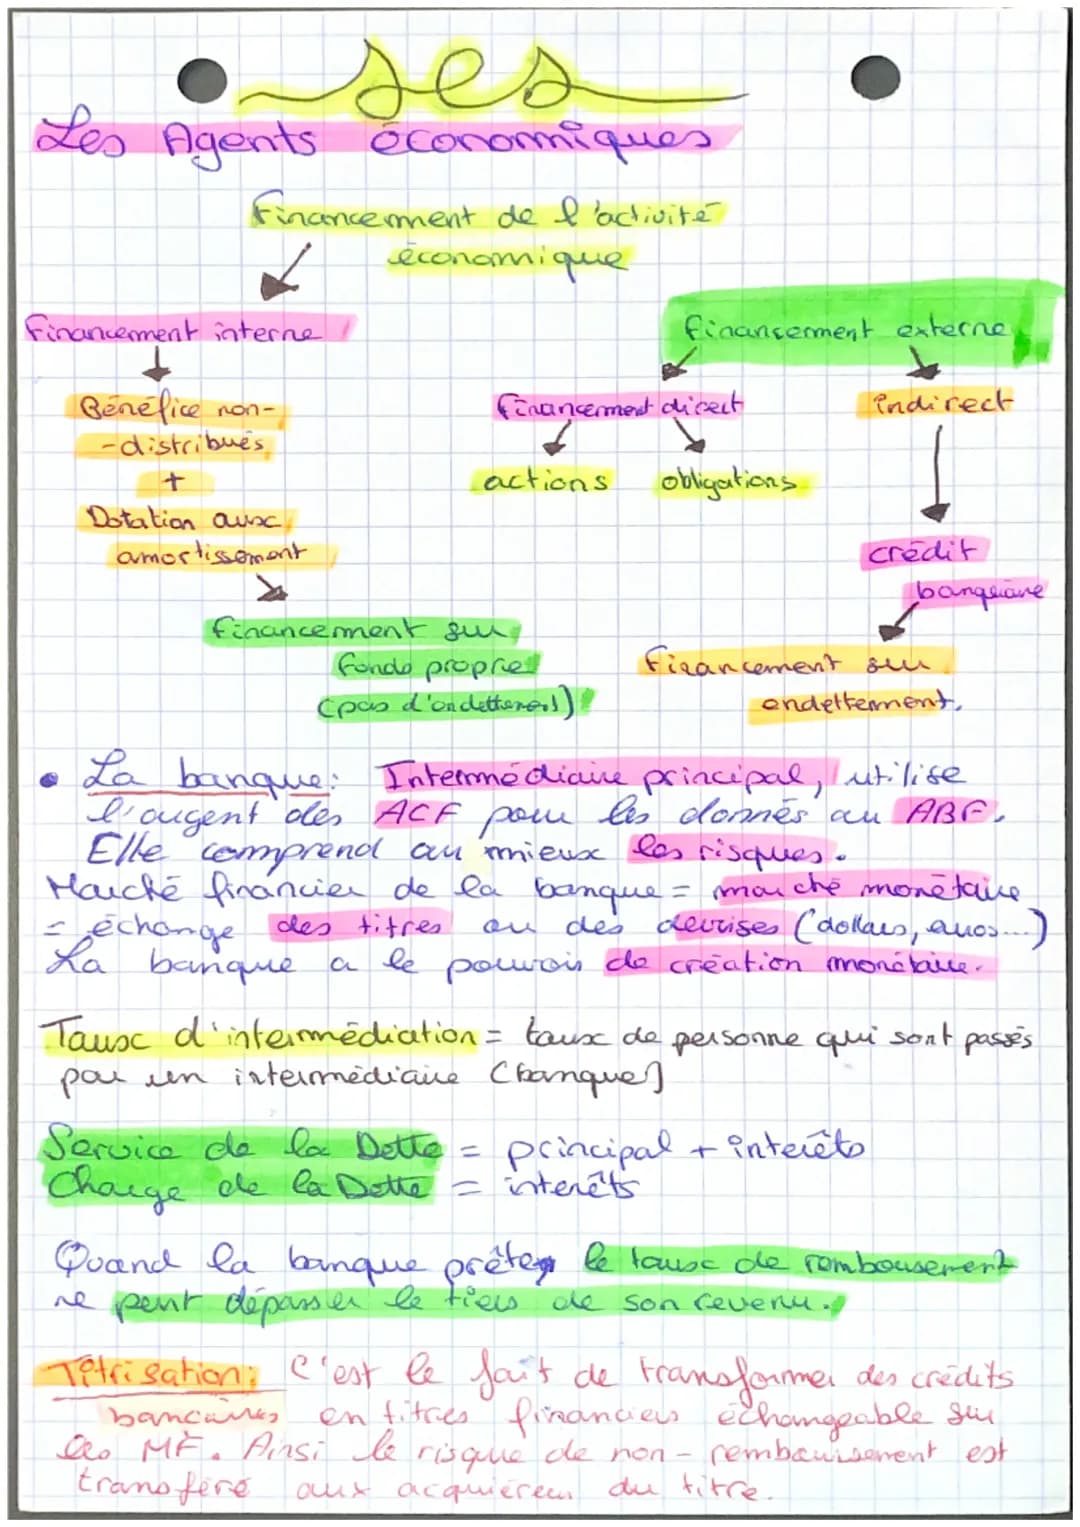 ses
Les Agents économiques
Financement de l'activité
économique
Financement interne
Financement externe
Bénéfice non-
-distribués
+
Dotation aux
amortissement
Financement direct
indirect
actions obligations
crédit
banquaire
Financement sur
fonds propre
(pas d'endettement)
Financement sur
endettement.
• La banque: Intermédiaire principal, utilise
l'argent des ACF pour les donnés au ABF.
Elle comprend au mieux les risques.
Marché financier de la banque = marché monétaire
= échange des titres ou des devises (dollars, euros...)
La banque a le pouvoir de création monétaire.
Taux d'intermédiation = taux de personne qui sont passés
par un intermédiaire (banque)
Service de la Dette = principal + interêts
Charge de la Dette = interêts
Quand la banque prête, le taux de rembousement
ne peut dépasser le tiers de son revenu.
Titrisation: C'est le fait de transformer des crédits
bancaires en titres financiers échangeable sur
les MF. Ainsi le risque de non-remboursement est
transféré aux acquiéreur du titre.